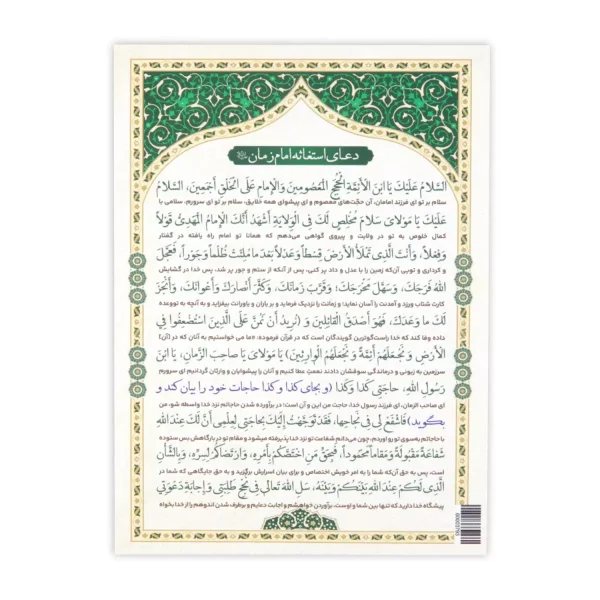 دعای استغاثه امام زمان
السَّلامُ عَلَيْكَ يَا ابْنَ الْأَئِمَّةِ الْحُجَجِ الْمَعْصُومِينَ وَالْإِمَامِ عَلَى الْخَلْقِ أَجْمَعِينَ، السَّلامُ
سلام بر تو ای فرزند امامان، آن حجّت‌های معصوم و ای پیشوای همه خلایق، سلام بر تو ای سرورم، سلامی با
عَلَيْكَ يَا مَوْلايَ سَلامَ مُخْلِصٍ لَكَ فِي الْوِلايَةِ أَشْهَدُ أَنَّكَ الْإِمَامُ الْمَهْدِيُّ قَوْلاً
کمال خلوص به تو در ولایت و پیروی گواهی می‌دهم که همانا تو امام راه یافته در گفتار
وَفِعْلاً، وَأَنْتَ الَّذِي تَمْلَأُ الْأَرْضَ قِسْطاً وَعَدْلاً بَعْدَ مَا مُلِئَتْ ظُلْماً وَجَوْراً، فَعَجَّلَ
و کرداری و تویی آن‌که زمین را با عدل و داد پر کنی، پس از آنکه از ستم و جور پر شد، پس خدا در گشایش
اللهُ فَرَجَكَ، وَسَهَّلَ مَخْرَجَكَ، وَقَرَّبَ زَمَانَكَ، وَكَثَّرَ أَنْصَارَكَ وَأَعْوَانَكَ، وَأَنْجَزَ
کارت شتاب ورزد و آمدنت را آسان نماید؛ و زمانت را نزدیک فرماید و بر یاران و یاورانت بیفزاید و به آنچه به تو وعده
لَكَ مَا وَعَدَكَ، فَهُوَ أَصْدَقُ الْقَائِلِينَ ﴿وَ نُرِيدُ أَنْ نَمُنَّ عَلَى الَّذِينَ اسْتُضْعِفُوا فِي
داده وفا کند که خدا راست‌گوترین گویندگان است که در قرآن فرموده: «ما می خواستیم به آنان که در [آن]
الْأَرْضِ وَ نَجْعَلَهُمْ أَئِمَّةً وَ نَجْعَلَهُمُ الْوَارِثِينَ﴾ يَا مَوْلايَ يَا صَاحِبَ الزَّمَانِ، يَا ابْنَ
سرزمین به زبونی و درماندگی سوقشان دادند نعمت عطا کنیم و آنان را پیشوایان و وارثان گردانیم ای سرورم
رَسُولِ اللهِ، حَاجَتِي كَذَا وَ كَذَا (و بجای کذا و کذا حاجات خود را بیان کند و
ای صاحب الزمان، ای فرزند رسول خدا، حاجت من این و آن است؛ در برآورده شدن حاجاتم نزد خدا واسطه شو، من
بگوید) فَاشْفَعْ لِي فِي نَجَاحِهَا، فَقَدْ تَوَجَّهْتُ إِلَيْكَ بِحَاجَتِي لِعِلْمِي أَنَّ لَكَ عِنْدَ اللهِ
با حاجاتم به‌سوی تو رو آوردم، چون می‌دانم شفاعت تو نزد خدا پذیرفته میشود و مقام تو در بارگاهش بس ستوده
شَفَاعَةً مَقْبُولَةً وَ مَقَاماً مَحْمُوداً، فَبِحَقِّ مَنِ اخْتَصَّكُمْ بِأَمْرِهِ، وَارْتَضَاكُمْ لِسِرِّهِ، وَبِالشَّأْنِ
است، پس به حق آن‌که شما را به امر خویش اختصاص و برای بیان اسرارش برگزید و به حق جایگاهی که شما در
الَّذِي لَكُمْ عِنْدَ اللهِ بَيْنَكُمْ وَبَيْنَهُ، سَلِ اللهَ تَعَالَى فِي نُجْحِ طَلِبَتِي وَ إِجَابَةِ دَعْوَتِي
پیشگاه خدا دارید که تنها بین شما و اوست، برآوردن خواهشم و اجابت دعایم و برطرف شدن اندوهم را از خدا بخواه